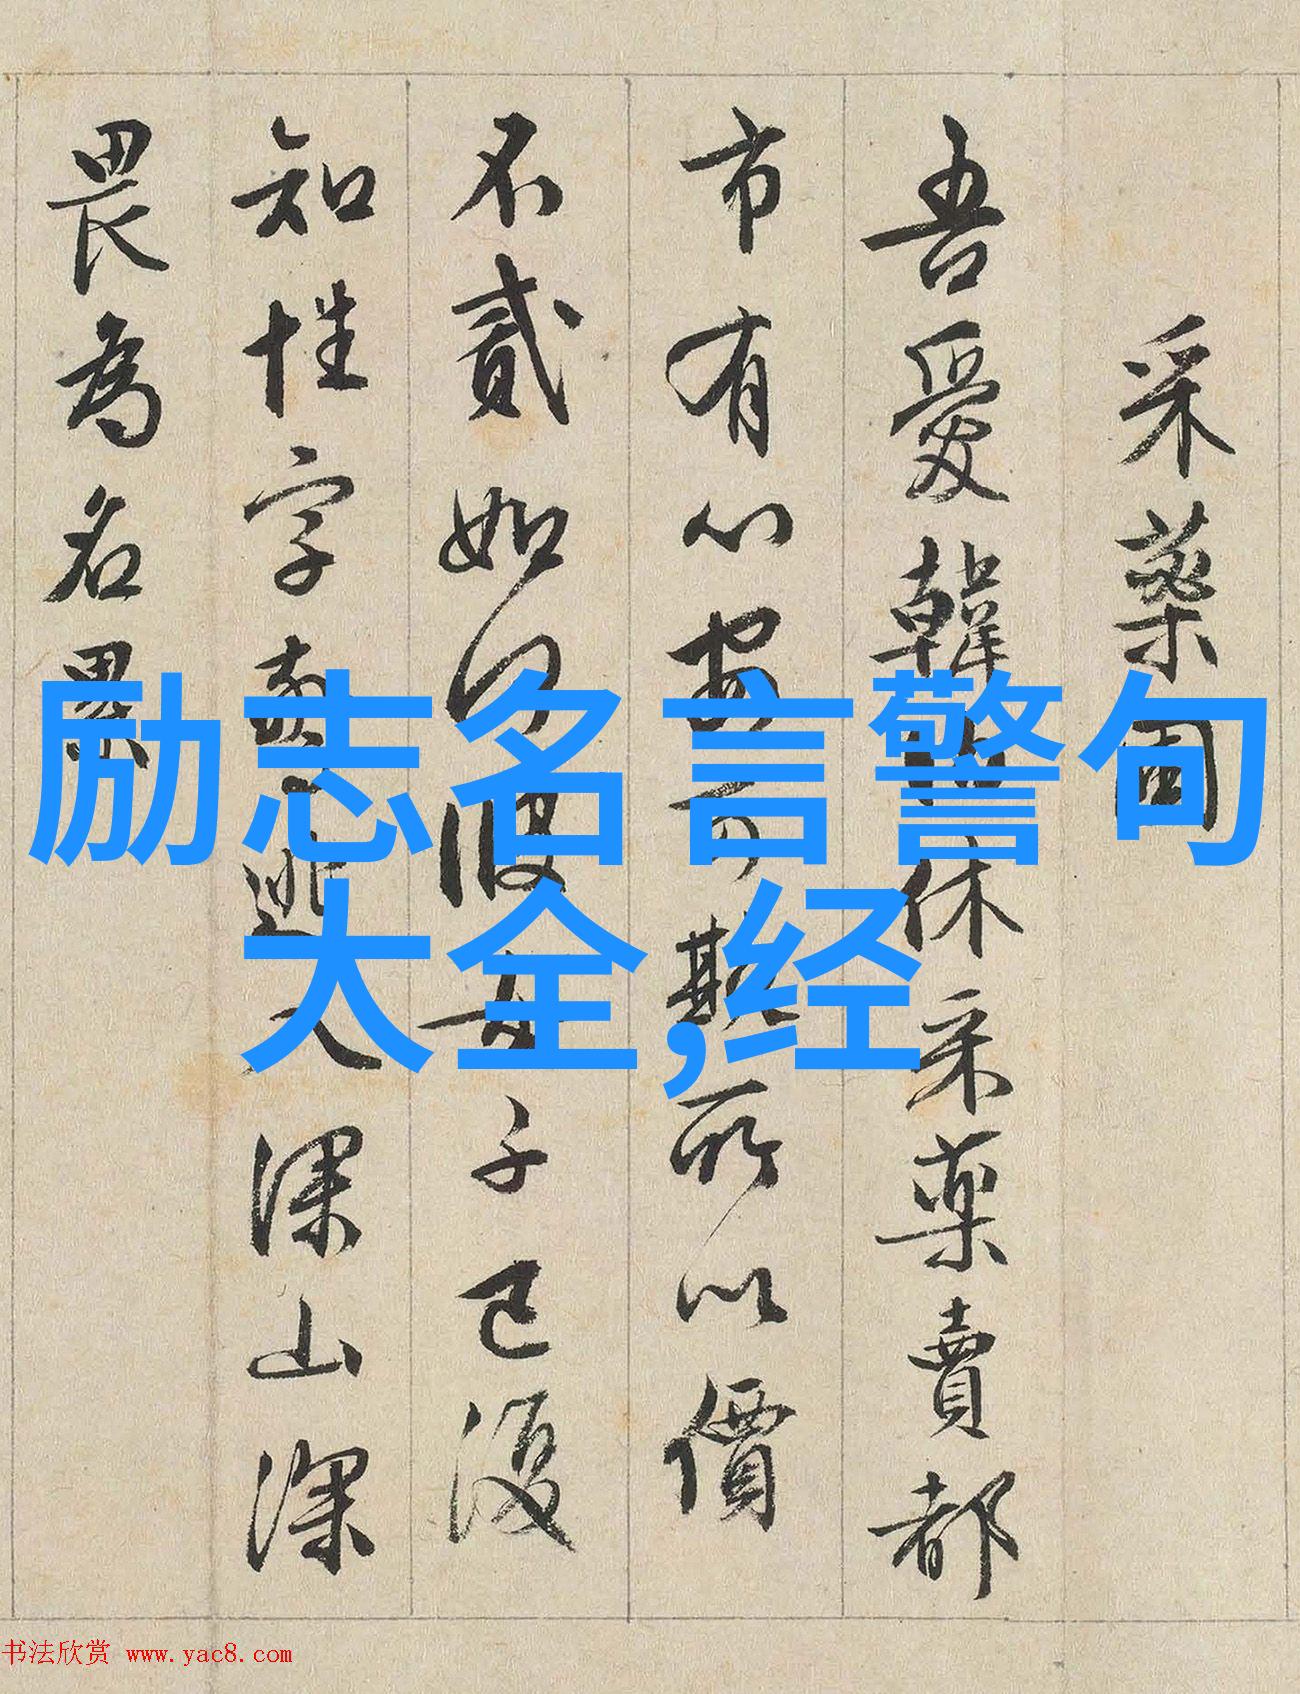 采藥圃
吾愛韓伯休采藥賣都
市有心安可欺所以價
不貳如何彼女子已復
知性字逃入深山深
畏為名累
励志名言警句
大全,经
书法欣赏 www.yac8.com